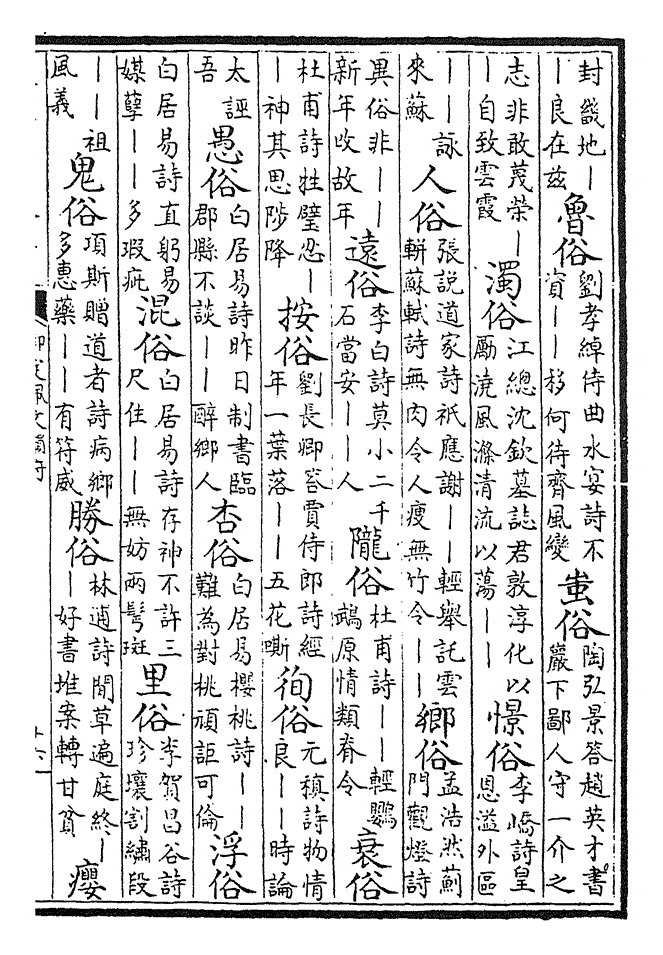 封畿地｜｜良在兹魯俗劉孝綽侍曲水宴詩不資｜｜移何待齊風變蚩俗陶弘景答趙英才書巖下鄙人守一介之
志非敢蔑榮｜｜自致雲霞濁俗江總沈欽墓誌君敦淳化以勵澆風滌清流以蕩｜｜憬俗李嶠詩皇恩溢外區
｜｜詠來蘇人俗張說道家詩祇應謝｜｜輕舉託雲輧蘇軾詩無肉令人瘦無竹令｜｜鄉俗孟浩然薊門觀燈詩
異俗非｜｜新年改故年遠俗李白詩莫小二千石當安｜｜人隴俗杜甫詩｜｜輕鸚鵡原情類脊令衰俗
杜甫詩牲璧忍｜｜神其思陟降按俗劉長卿答賈侍郎詩經年一葉落｜｜五花嘶徇俗元稹詩物情良｜｜時論
太誣吾愚俗白居易詩昨日制書臨郡縣不談｜｜醉鄉人杏俗白居易櫻桃詩｜｜難為對桃頑詎可倫浮俗
白居易詩直躬易媒孽｜｜多瑕疵混俗白居易詩存神不許三尺住｜｜無妨兩鬢斑里俗李賀昌谷詩珍壤割繡段
｜｜祖風義鬼俗項斯贈道者詩病鄉多惠藥｜｜有符威勝俗林逋詩閒草遍庭終｜｜好書堆案轉甘貧癭